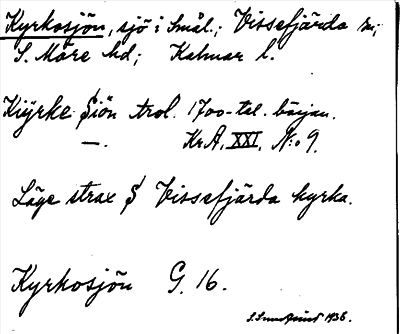 Kyrkosjön, sjö i Smål.; Vissefjärda sn;
S. Möre hd; Kalmar l.
Kiÿrke Siön trol. 1700-tal. början.
—. Kr.A, XXI, N:o 9.
Läge strax S Vissefjärda kyrka.
Kyrkosjön G. 16.
1936.